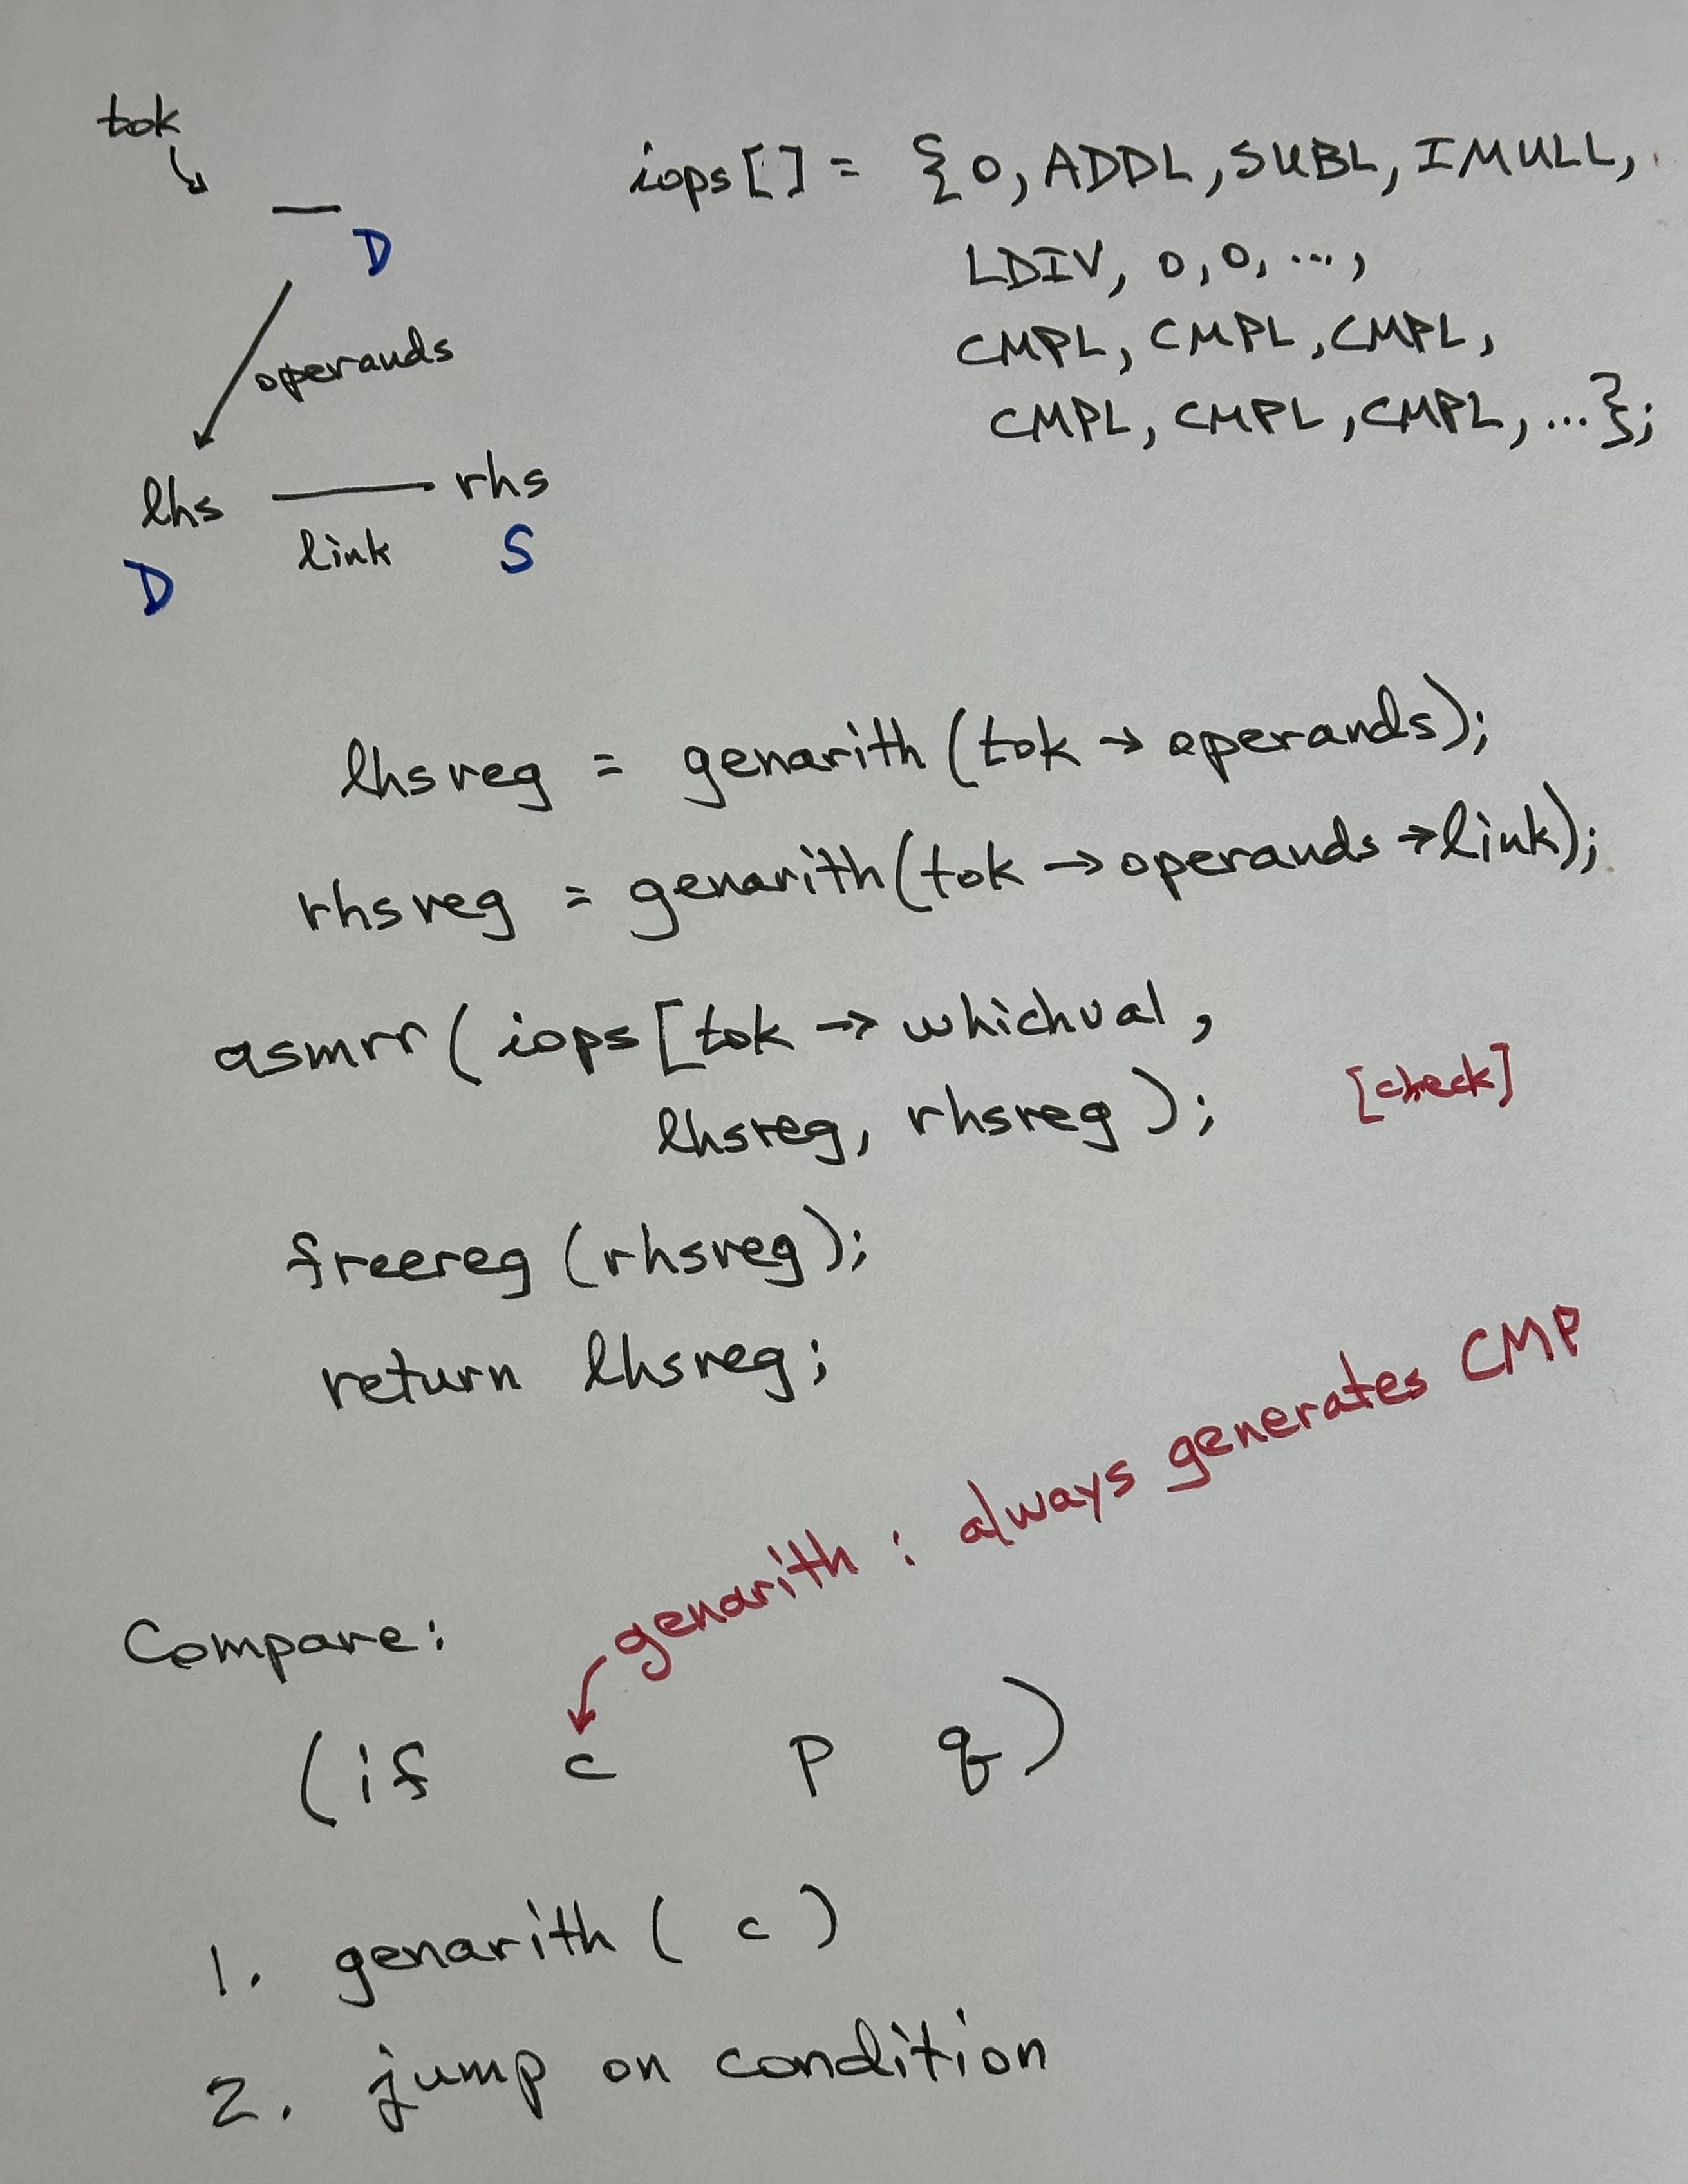 tok
D
operands
lhs rhs
link
D S
iops[] = {0, ADDL, SUBL, IMULL,
LDIV, 0, 0, ...,
CMPL, CMPL, CMPL,
CMPL, CMPL, CMPL, ...};
lhsreg = genarith (tok → operands);
rhsreg = genarith(tok → operands → link);
asmrr ( iops [tok → whichval,
lhsreg, rhsreg );
[check]
freereg (rhsreg);
return lhsreg;
genarith : always generates CMP
Compare:
(if c p q)
1. genarith ( c )
2. jump on condition